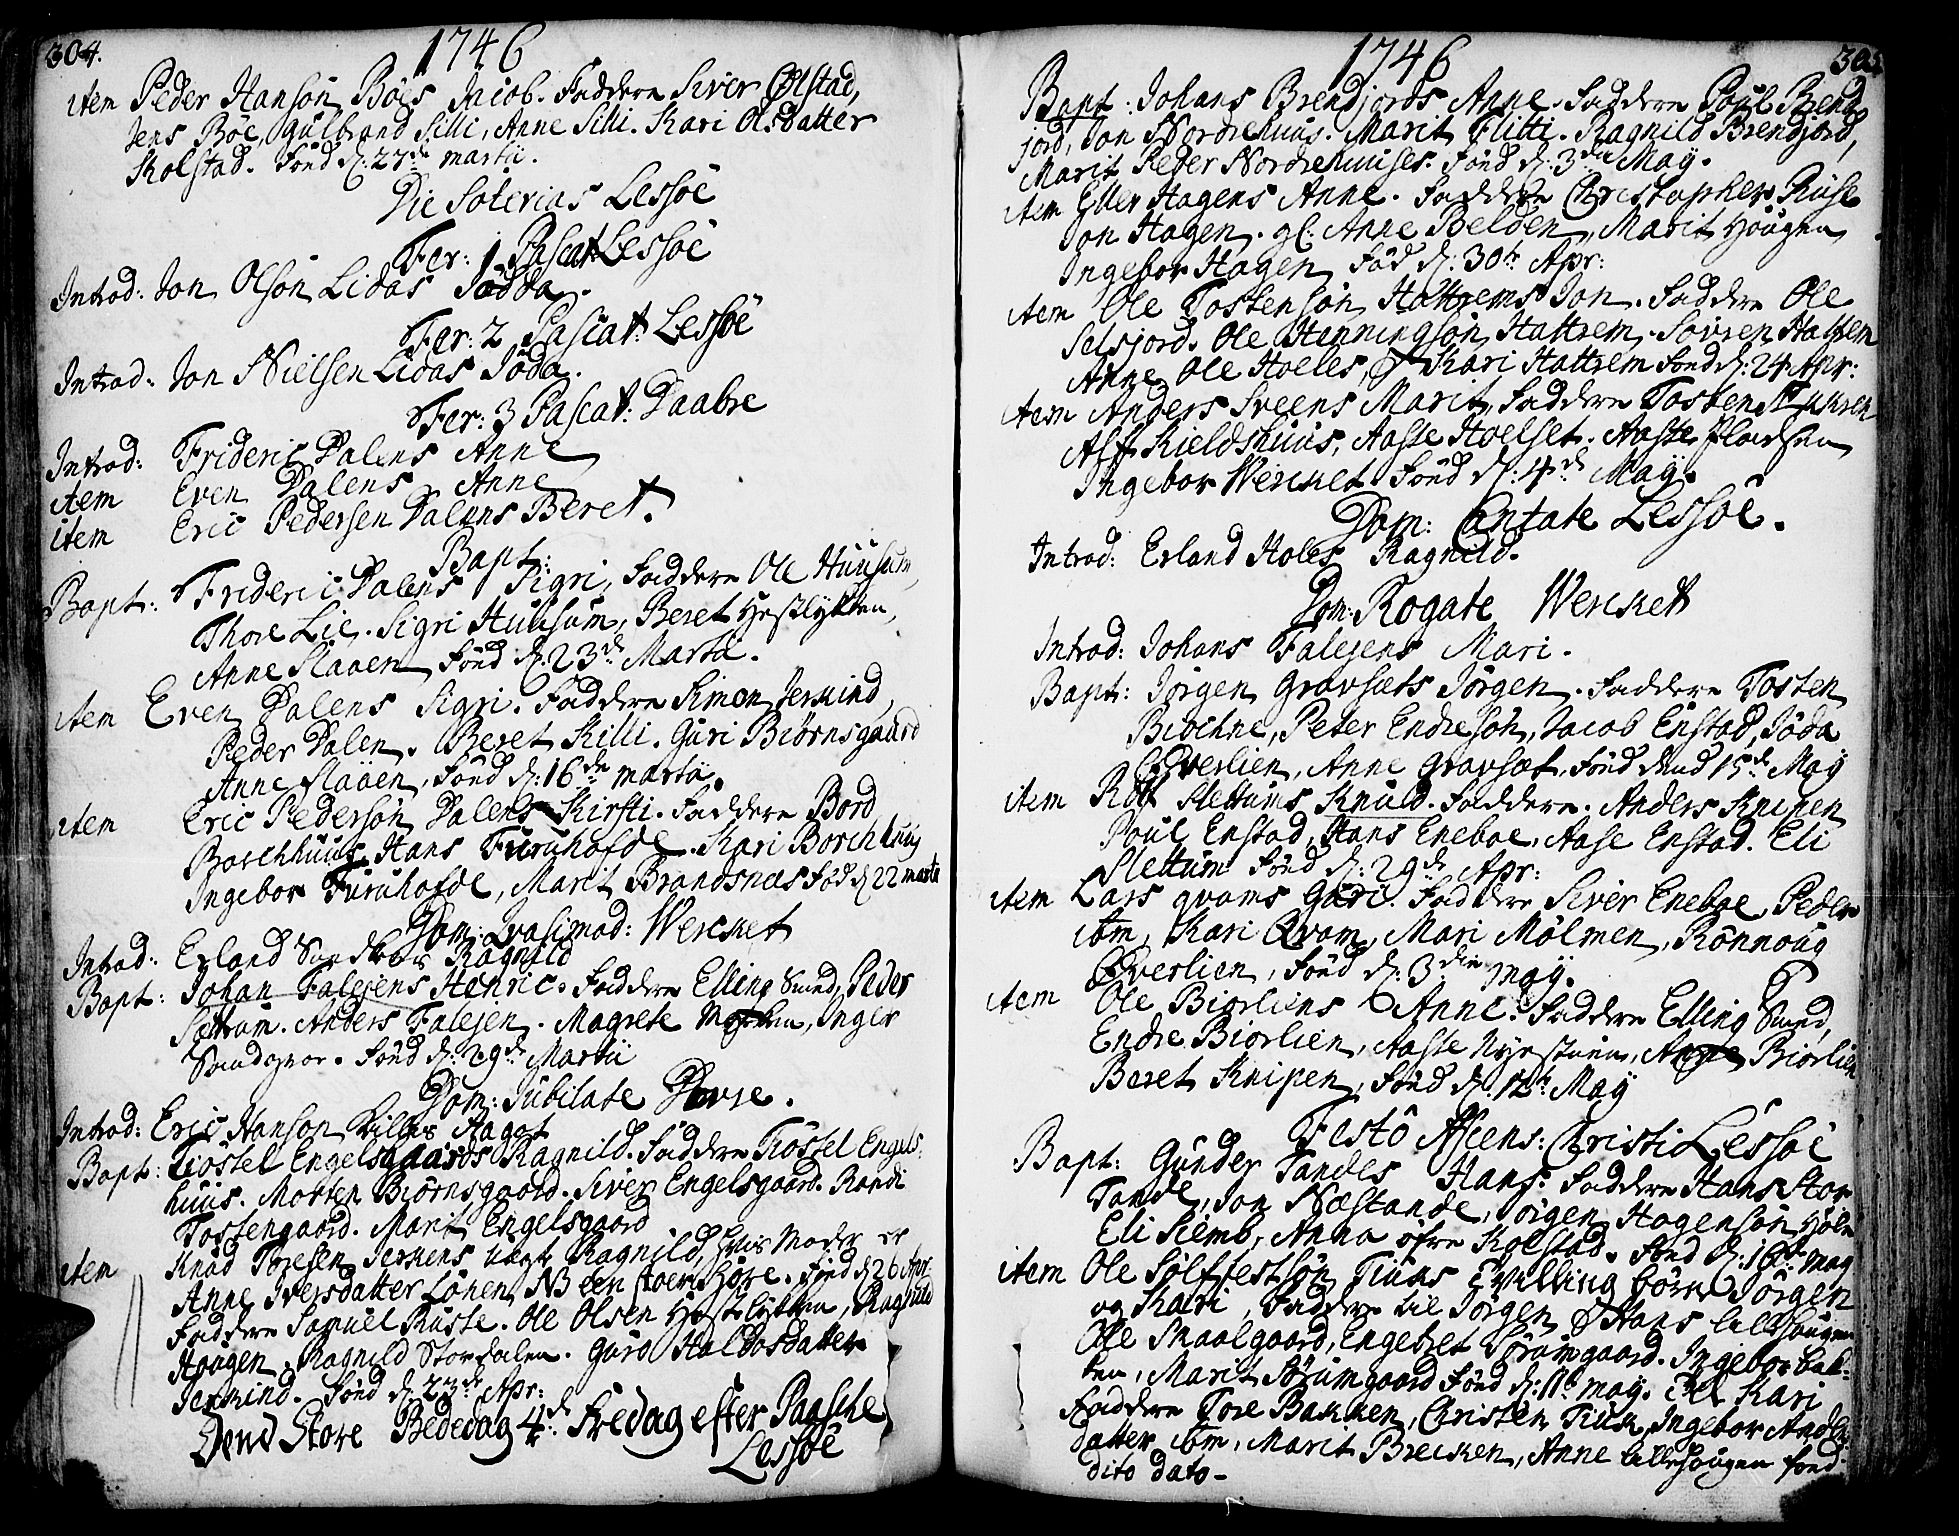 304.
1746
item Peder Hansøn Böes Jacob. Faddere Siver Ølstad,
Jens Böe, Gulbrand Silli, Anne Silli. Kari Olsdatter
Kolstad. Fönd d: 27de martii.
Die Soterias Lessöe
Fer: 1 Pascat: Lessöe
Introd: Jon Olsön Lidas Jödda.
Fer: 2 Pascat: Lessöe
Introd: Jon Nielsen Lidas Jöda.
Fer: 3 Pascat: Daabre
Introd: Frideric Dalens Anne
item Even Dalens Anne
item Eric Pedersen Dalens Beret.
Bapt:
Bapt: Frideric Dalens Sigri, Faddere Ole Huusum,
Thore Lie. Sigri Huusum, Beret Hestlykken,
Anne Slaaen Fönd d: 23de Martii.
item Even Dalens Sigri. Faddere Simen Jerkind
Peder Dalen. Beret Killi. Guri Biørnsgaard
Anne Slaaen, Fönd d: 16de martii.
item Eric Pedersøn Dalens Kirsti. Faddere Bord
Borchhuus, Hans Furuhofde. Kari Borchhuus
Ingebor Furuhofde, Marit Brandsnæs Fød d 22 martii
Dom: Qvasimod: Wercket
Introd: Erland Ragnild
Bapt: Johan Falesens Henric. Faddere Elling Smed, Peder
Sættrum. Anders Falesen. Magrete Inger
Sandsgvor. Fönd d: 29de Martii
Dom: Jubilate Dovre.
Introd: Eric Hanson Lilles Aagot
Bapt: Kiöstel Engelsgaards Ragnild. Faddere Kiöstel Engels-
huus. Morten Biørnsgaard. Siver Engelsgaard. Randi
Tostengaard. Marit Engelsgaard
item Knud Toresen Jerkens uægt Ragnild, hvis Moder er
Anne Iversdatter Lönen NB een stoer Hore. Fönd d 26 Apr:
Faddere Samuel Ruste. Ole Olsen Hestelykken, Ragnild
Hougen. Ragnild Stordalen. Guro Haldosdatter
Jerkind. Fönd d: 23de Apr:
Dend Store Bededag 4de Fredag efter Paasche
Lessöe
1746
305
Bapt: Johans Brendjords Anne. Faddere Poul Brend-
jord, Jon Nordrehuus. Marit Flitti. Ragnild Brendjord,
Marit Peder Nordrehuuses. Fönd d: 3die May.
item Eller Hagens Anne. Faddere Christopher Ruse
Jon Hagen. gl: Anne Belden, Marit Hougen
Ingebor Hagen Fød d: 30te Apr:
item Ole Tostensøn Hattrems Jon. Faddere Ole
Selsjord. Ole Henningsøn Hattrem. Sövren Hattrem
Anne Ole Holles, & Kari Hattrem Fönd d: 24 Apr:
item Anders Sveens Marit, Faddere Tosten
Alf Kieldshuus, Aasse Hoelset. Aasse Pladsen
Ingebor Wercket Fönd d: 4de May.
Dom: Cantate Lessöe.
Introd: Erland Holes Ragnild.
Dom: Rogate Wercket
Introd: Johans Falesens Mari.
Bapt: Jörgen Gravsæts Jörgen. Faddere Tosten
Biöhne, Peter Endresön, Jacob Enstad, Jöda
Øverlien, Anne Gravsæt, Fönd dend 15de May
item Rolf Slettums Knuld. Faddere. Anders Knipen
Poul Enstad, Hans Eneboe, Aase Enstad. Eli
Slettum Fönd d: 29de Apr:
item Lars Qvams Guri. Faddere Siver Eneboe, Peder
ibm, Kari Qvam, Mari Mölmen, Rönnoug
Øverlien, Fönd d: 3die may.
item Ole Biorliens Anne. Faddere Elling Smed,
Endre Biorlien, Aasse Nystuen, Anne Biorlien
Beret Knipen, Fönd d: 12te May
Festo Ascens: Christi Lessöe
Bapt: Gunder Tandes Hans. Faddere Hans Stor
Tande, Jon Næstande, Jörgen Hogensön Holm
Eli Siemb, Anna öfre Kolstad. Fönd d: 16de may
item Ole Solffestsøn Tiuks Tvilling börn Jörgen
og Kari, Faddere til Jörgen & Hans Lillehougen
Ole Skaalgaard, Engebret Sörumgaard. Ingebor Bak-
ken, Marit Sörumgaard Fönd d: 11te may. Til Kari
Faddere Tore Bakken, Christen Tiuk, Ingebor Anders-
datter ibm, Marit Brecken, Anne Lillehougen fönd
dito dato-